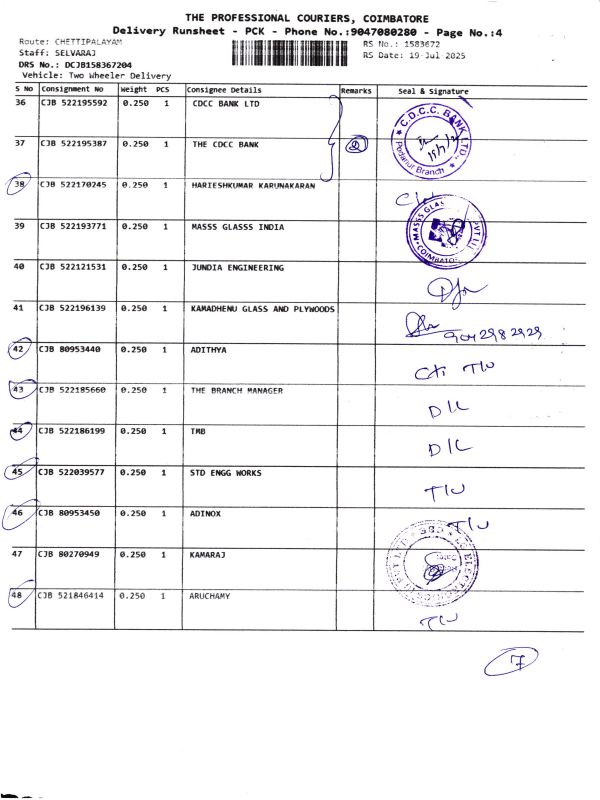 THE PROFESSIONAL COURIERS, COIMBATORE
Delivery Runsheet - PCK - Phone No.:9047080280 - Page No.:4
Route: CHETTIPALAYAM RS No.: 1583672
Staff: SELVARAJ RS Date: 19-Jul 2025
DRS No.: DCJB158367204
Vehicle: Two Wheeler Delivery
S No Consignment No Weight PCS Consignee Details Remarks Seal & Signature
36 CJB 522195592 0.250 1 CDCC BANK LTD
C.D.C.C. BANK LTD.,
Podanur Branch
37 CJB 522195387 0.250 1 THE CDCC BANK 2
38 CJB 522170245 0.250 1 HARIESHKUMAR KARUNAKARAN
39 CJB 522193771 0.250 1 MASSS GLASSS INDIA
MASSS GLAS PVT LT
COIMBATO
40 CJB 522121531 0.250 1 JUNDIA ENGINEERING
41 CJB 522196139 0.250 1 KAMADHENU GLASS AND PLYWOODS
9042982929
42 CJB 80953440 0.250 1 ADITHYA
T/U
43 CJB 522185660 0.250 1 THE BRANCH MANAGER
D/L
44 CJB 522186199 0.250 1 TMB
D/L
45 CJB 522039577 0.250 1 STD ENGG WORKS
T/U
46 CJB 80953450 0.250 1 ADINOX
T/U
47 CJB 80270949 0.250 1 KAMARAJ
48 CJB 521846414 0.250 1 ARUCHAMY
T/U
7